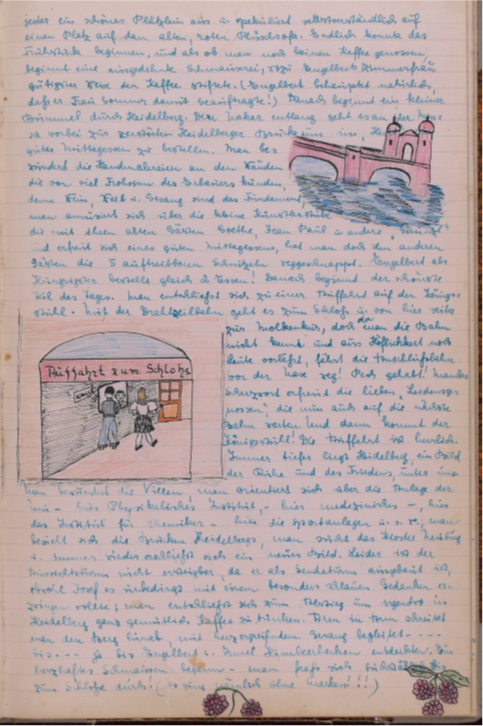 jeder ein schönes Plätzlein aus u. spekuliert selbstverständlich auf
einen Platz auf dem alten, roten Plüschsofa. Endlich konnte das
Frühstück beginnen, und als ob man noch keinen Kaffee genossen,
beginnt eine ausgedehnte Schmauserei, wozu Engelberts Zimmerfrau
gütiger Weise den Kaffee stiftete. (Engelbert behauptet natürlich,
daß er Frau Sommer damit beauftragte!) Danach beginnt ein kleiner
Bummel durch Heidelberg. Den Neckar entlang geht es an der
vorbei zur zerstörten Heidelberger Brücke uns ins
gutes Mittagessen zu bestellen. Man be-
wundert die Wandmalereien an den Wänden
die von viel Frohsinn des Erbauers künden,
denn Wein, Weib u. Gesang sind das Fundament,
man amüsiert sich über die kleine
die mit ihren alten Gästen Goethe, Jean Paul u. andere
und erfreut sich eines guten Mittagessens, hat man doch den anderen
Gästen die 5 Schnitzeln weggeschnappt. Engelbert als
bestellt gleich 2 Essen! Danach beginnt der schönste
Teil des Tages. Man entschließt sich zu einer Auffahrt auf den Königs-
stuhl. Mit der Drahtseilbahn geht es zum Schloß u. von hier weiter
zur Molkenkur, doch da man die Bahn
nicht kennt und aus Höflichkeit noch
Leute vorläßt, fährt die Anschlußbahn
vor der Nase weg! Pech gehabt!
erfreut die lieben „Leidensge-
nossen", die nun auch auf die nächste
Bahn warten. Und dann kommt der
Königsstuhl! Die Auffahrt ist herrlich.
Immer tiefer liegt Heidelberg, ein Bild
der Ruhe und des Friedens, unter uns
Auffahrt zum Schloße
man bewundert die Villen, man orientiert sich über die Anlage der
Uni - hier Physikalisches Institut, - hier medizinisches -, hier
das Institut für Chemiker - hier die Sportanlagen u.s.w., man
besieht sich die Brücken Heidelbergs, man sucht das Kloster Neuburg
u. immer wieder erschließt sich ein neues Bild. Leider ist der
nicht ersteigbar, da er als Sendeturm ausgebaut ist,
obwohl Josef es unbedingt mit einem besonders schlauen Gedanken er-
zwingen wollte; man entschließt sich zum Abstieg um irgendwo in
Heidelberg ganz gemütlich Kaffee zu trinken. Arm in Arm schreitet
man den Berg hinab, mit herzergreifendem Gesang begleitet - - - -
bis - - - ja bis Engelbert u. Himbeerhecken entdeckten. Ein
herzhaftes Schmausen begann - man fraß sich
zum Schloße durch! (es ging nämlich ohne Marken!!!)